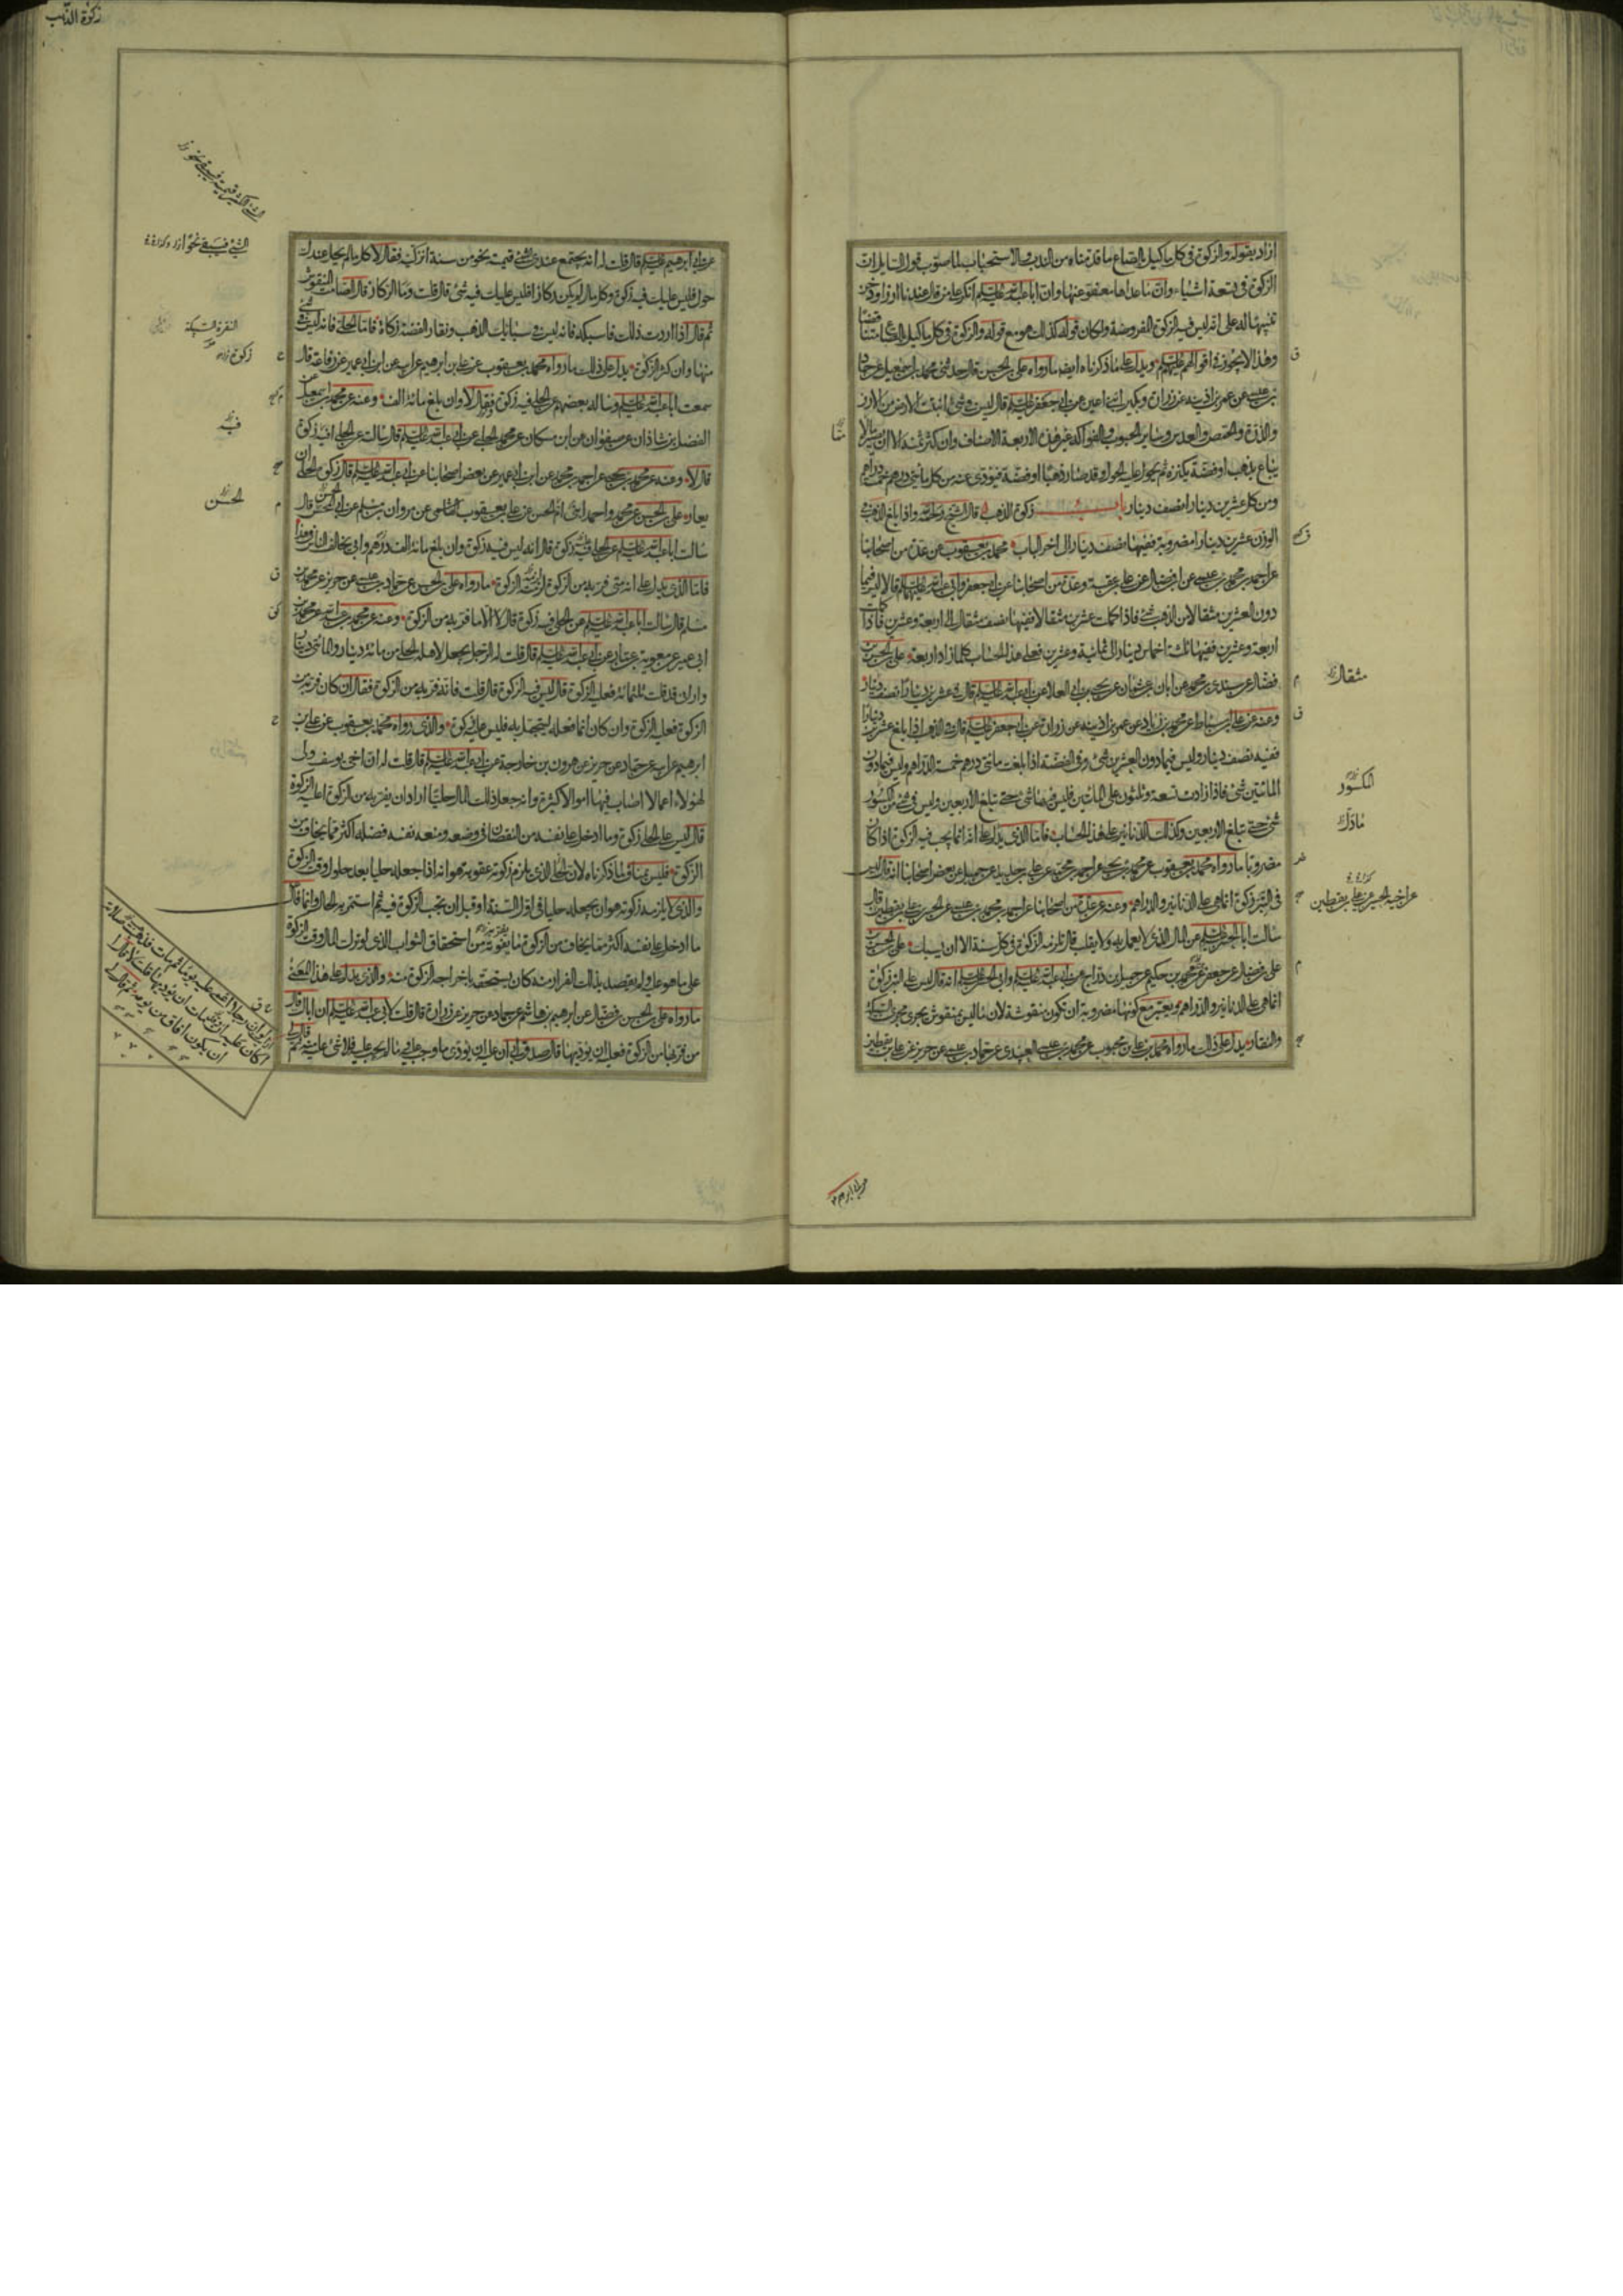 اراد بقوله والزكوة في كل ما كيل بالصاع ما قدمناه من الندب والاستحباب لما صوب قول السايل ان
الزكوة في تسعة اشياء وان ما عداها معفو عنها وان ابا عبد الله عليه السلام انكر عليه
تنبيها له على انه ليس فيه الزكوة المفروضة ولو كان قوله كذلك هو مع قوله والزكوة في كل ما كيل بالصاع متناقضا
وهذا لا يجوز في اقوالهم عليهم السلام ويدل على ما ذكرناه ايضا ما رواه علي بن الحسن قال حدثني محمد بن اسمعيل عن حماد
بن عيسى عن عمر بن اذينة عن زرارة وبكير ابني اعين عن ابي جعفر عليه السلام قال ليس في شئ انبتت الارض من الارز
والذرة والحمص والعدس وساير الحبوب والفواكه غير هذه الاربعة الاصناف وان كثر ثمنه الا ان يصير مالا
يباع بذهب او فضة يكنزه ثم يحول عليه الحول وقد صار ذهبا او فضة فيؤدى عنه من كل مأتي درهم خمسة دراهم
ومن كل عشرين دينارا نصف دينار باب زكوة الذهب قال الشيخ رحمه الله واذا بلغ الذهب في
الوزن عشرين دينارا مضروبة ففيها نصف دينار الى اخر الباب محمد بن يعقوب عن عدة من اصحابنا
عن احمد بن محمد بن عيسى عن ابن فضال عن علي بن عقبة وعدة من اصحابنا عن ابي جعفر وابي عبد الله عليهما السلام قالا ليس فيما
دون العشرين مثقالا من الذهب شئ فاذا كملت عشرين مثقالا ففيها نصف مثقال الى اربعة وعشرين فاذا كانت
اربعة وعشرين ففيها ثلثة اخماس دينار الى ثمانية وعشرين فعلى هذا الحساب كلما زاد اربعة علي بن الحسن بن
فضال عن سندي بن محمد عن ابان بن عثمان عن يحيى بن ابي العلا عن ابي عبد الله عليه السلام قال في عشرين دينارا نصف دينار
وعنه عن علي بن اسباط عن محمد بن زياد عن عمر بن اذينة عن زرارة عن ابي جعفر عليه السلام قال في الذهب اذا بلغ عشرين دينارا
ففيه نصف دينار وليس فيما دون العشرين شئ وفي الفضة اذا بلغت مأتي درهم خمسة دراهم وليس فيما دون
المائتين شئ فاذا زادت تسعة وثلثون على المائتين فليس فيها شئ حتى تبلغ الاربعين وليس في شئ من الكسور
شئ حتى تبلغ الاربعين وكذلك الدنانير على هذا الحساب فاما الذي يدل على انه انما يجب فيه الزكوة اذا كان
مضروبا ما رواه محمد بن يعقوب عن محمد بن يحيى عن احمد بن محمد عن علي بن حديد عن جميل عن بعض اصحابنا انه قال ليس
في التبر زكوة انما هي على الدنانير والدراهم وعنه عن عدة من اصحابنا عن احمد بن محمد بن عيسى عن الحسن بن علي بن يقطين قال
سالت ابا الحسن عليه السلام عن المال الذي لا يعمل به ولا يقلب قال تلزمه الزكوة في كل سنة الا ان يسبك علي بن الحسن بن
علي بن فضال عن جعفر بن محمد بن حكيم عن جميل بن دراج عن ابي عبد الله عليه السلام وابي الحسن عليه السلام انه قال ليس على التبر زكوة
انما هي على الدنانير والدراهم ويعتبر مع كونها مضروبة ان تكون منقوشة لان ما ليس بمنقوش يجري مجرى السبائك
والنقار يدل على ذلك ما رواه محمد بن علي بن محبوب عن محمد بن عيسى العبيدي عن حماد بن عيسى عن حريز عن علي بن يقطين
مثقال
الكسور
ما دون
عن اخيه الحسين عن علي بن يقطين
زكوة الذهب
عن ابي ابرهيم عليه السلام قال قلت له انه يجتمع عندي الشئ قيمته نحو من سنة انزكيه فقال لا كل ما لم يحل عندك
حول فليس عليك فيه زكوة وكل ما لم يكن ركازا فليس عليك فيه شئ قال قلت وما الركاز قال الصامت المنقوش
ثم قال اذا اردت ذلك فاسبكه فانه ليس في سبائك الذهب ونقار الفضة زكاة فاما الحلي فانه ليس في شئ
منها وان كثر الزكوة يدل على ذلك ما رواه محمد بن يعقوب عن علي بن ابرهيم عن ابيه عن ابن ابي عمير عن رفاعة قال
سمعت ابا عبد الله عليه السلام وساله بعضهم عن الحلي فيه زكوة فقال لا وان بلغ مائة الف وعنه عن محمد بن اسمعيل عن
الفضل بن شاذان عن صفوان عن ابن مسكان عن محمد الحلبي عن ابي عبد الله عليه السلام قال سالت عن الحلي افيه زكوة
قال لا وعنه عن محمد بن يحيى عن احمد بن محمد عن ابن ابي عمير عن بعض اصحابنا عن ابي عبد الله عليه السلام قال زكوة الحلي ان
يعار علي بن الحسن عن محمد واحمد ابني الحسن عن علي بن يعقوب الهاشمي عن مروان بن مسلم عن ابي الحسن قال
سالت ابا عبد الله عليه السلام عن الحلي فيه زكوة قال انه ليس فيه زكوة وان بلغ مائة الف درهم وابي يخالف الناس في هذا
فاما الذي يدل على انه متى فر به من الزكوة لزمته الزكوة ما رواه علي بن الحسن عن حماد بن عيسى عن حريز عن محمد بن
مسلم قال سالت ابا عبد الله عليه السلام عن الحلي فيه زكوة قال لا الا ما فر به من الزكوة وعنه عن محمد بن عبد الله عن محمد بن
ابي عمير عن معوية بن عمار عن ابي عبد الله عليه السلام قال قلت له الرجل يجعل لاهله الحلي من مائة دينار والمأتي دينار
واراني قد قلت ثلثمائة فعليه الزكوة قال ليس فيه الزكوة قال قلت فانه فر به من الزكوة فقال ان كان فر به من
الزكوة فعليه الزكوة وان كان انما فعله ليتجمل به فليس عليه زكوة والذي رواه محمد بن يعقوب عن علي بن
ابرهيم عن ابيه عن حماد عن حريز عن هرون بن خارجة عن ابي عبد الله عليه السلام قال قلت له ان اخي يوسف ولي
لهؤلاء اعمالا اصاب فيها اموالا كثيرة وانه جعل ذلك المال حليا اراد ان يفر به من الزكوة اعليه الزكوة
قال ليس على الحلي زكوة وما ادخل على نفسه من النقصان في وضعه ومنعه نفسه فضله اكثر مما يخاف من
الزكوة فليس بمناف لما ذكرناه لان الحلي الذي يلزم زكوته عقوبة هو انه اذا جعله حليا بعد حلول وقت الزكوة
والذي لا يلزمه زكوته هو ان يجعله حليا في اول السنة او قبل ان يجب الزكوة فيه ثم استمر به الحال وانما قال
ما ادخل على نفسه اكثر مما يخاف من الزكوة ما يفوته من استحقاق الثواب الذي لو ترك المال وقت الزكوة
على ما هو عليه ولم يقصد بذلك الفرار منه كان يستحقه باخراجه الزكوة منه والذي يدل على هذا المعنى
ما رواه علي بن الحسن بن فضال عن ابرهيم بن هاشم عن حماد عن حريز عن زرارة قال قلت لابي عبد الله عليه السلام ان اباك قال
من فر بها من الزكوة فعليه ان يؤديها قال صدق ابي ان عليه ان يؤدي ما وجب عليه وما لم يجب عليه فلا شئ عليه منه ثم قال لي
الشئ فيبقى نحوا
زكوة
فيه
الحسن
ارايت لو ان رجلا اغمي عليه يوما ثم مات فذهبت صلاته
اكان عليه وقد مات ان يؤديها قلت لا قال الا
ان يكون افاق من يومه ثم قال لي